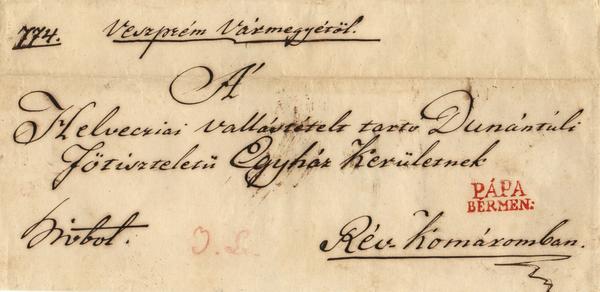 774. Veszprém Vármegyétől.
A'
Helvecziai Vallástételt tartó Dunántúli
Főtiszteletű Egyház Kerületnek
PÁPA
BÉRMEN:
hivbol.
Rév Komáromban.